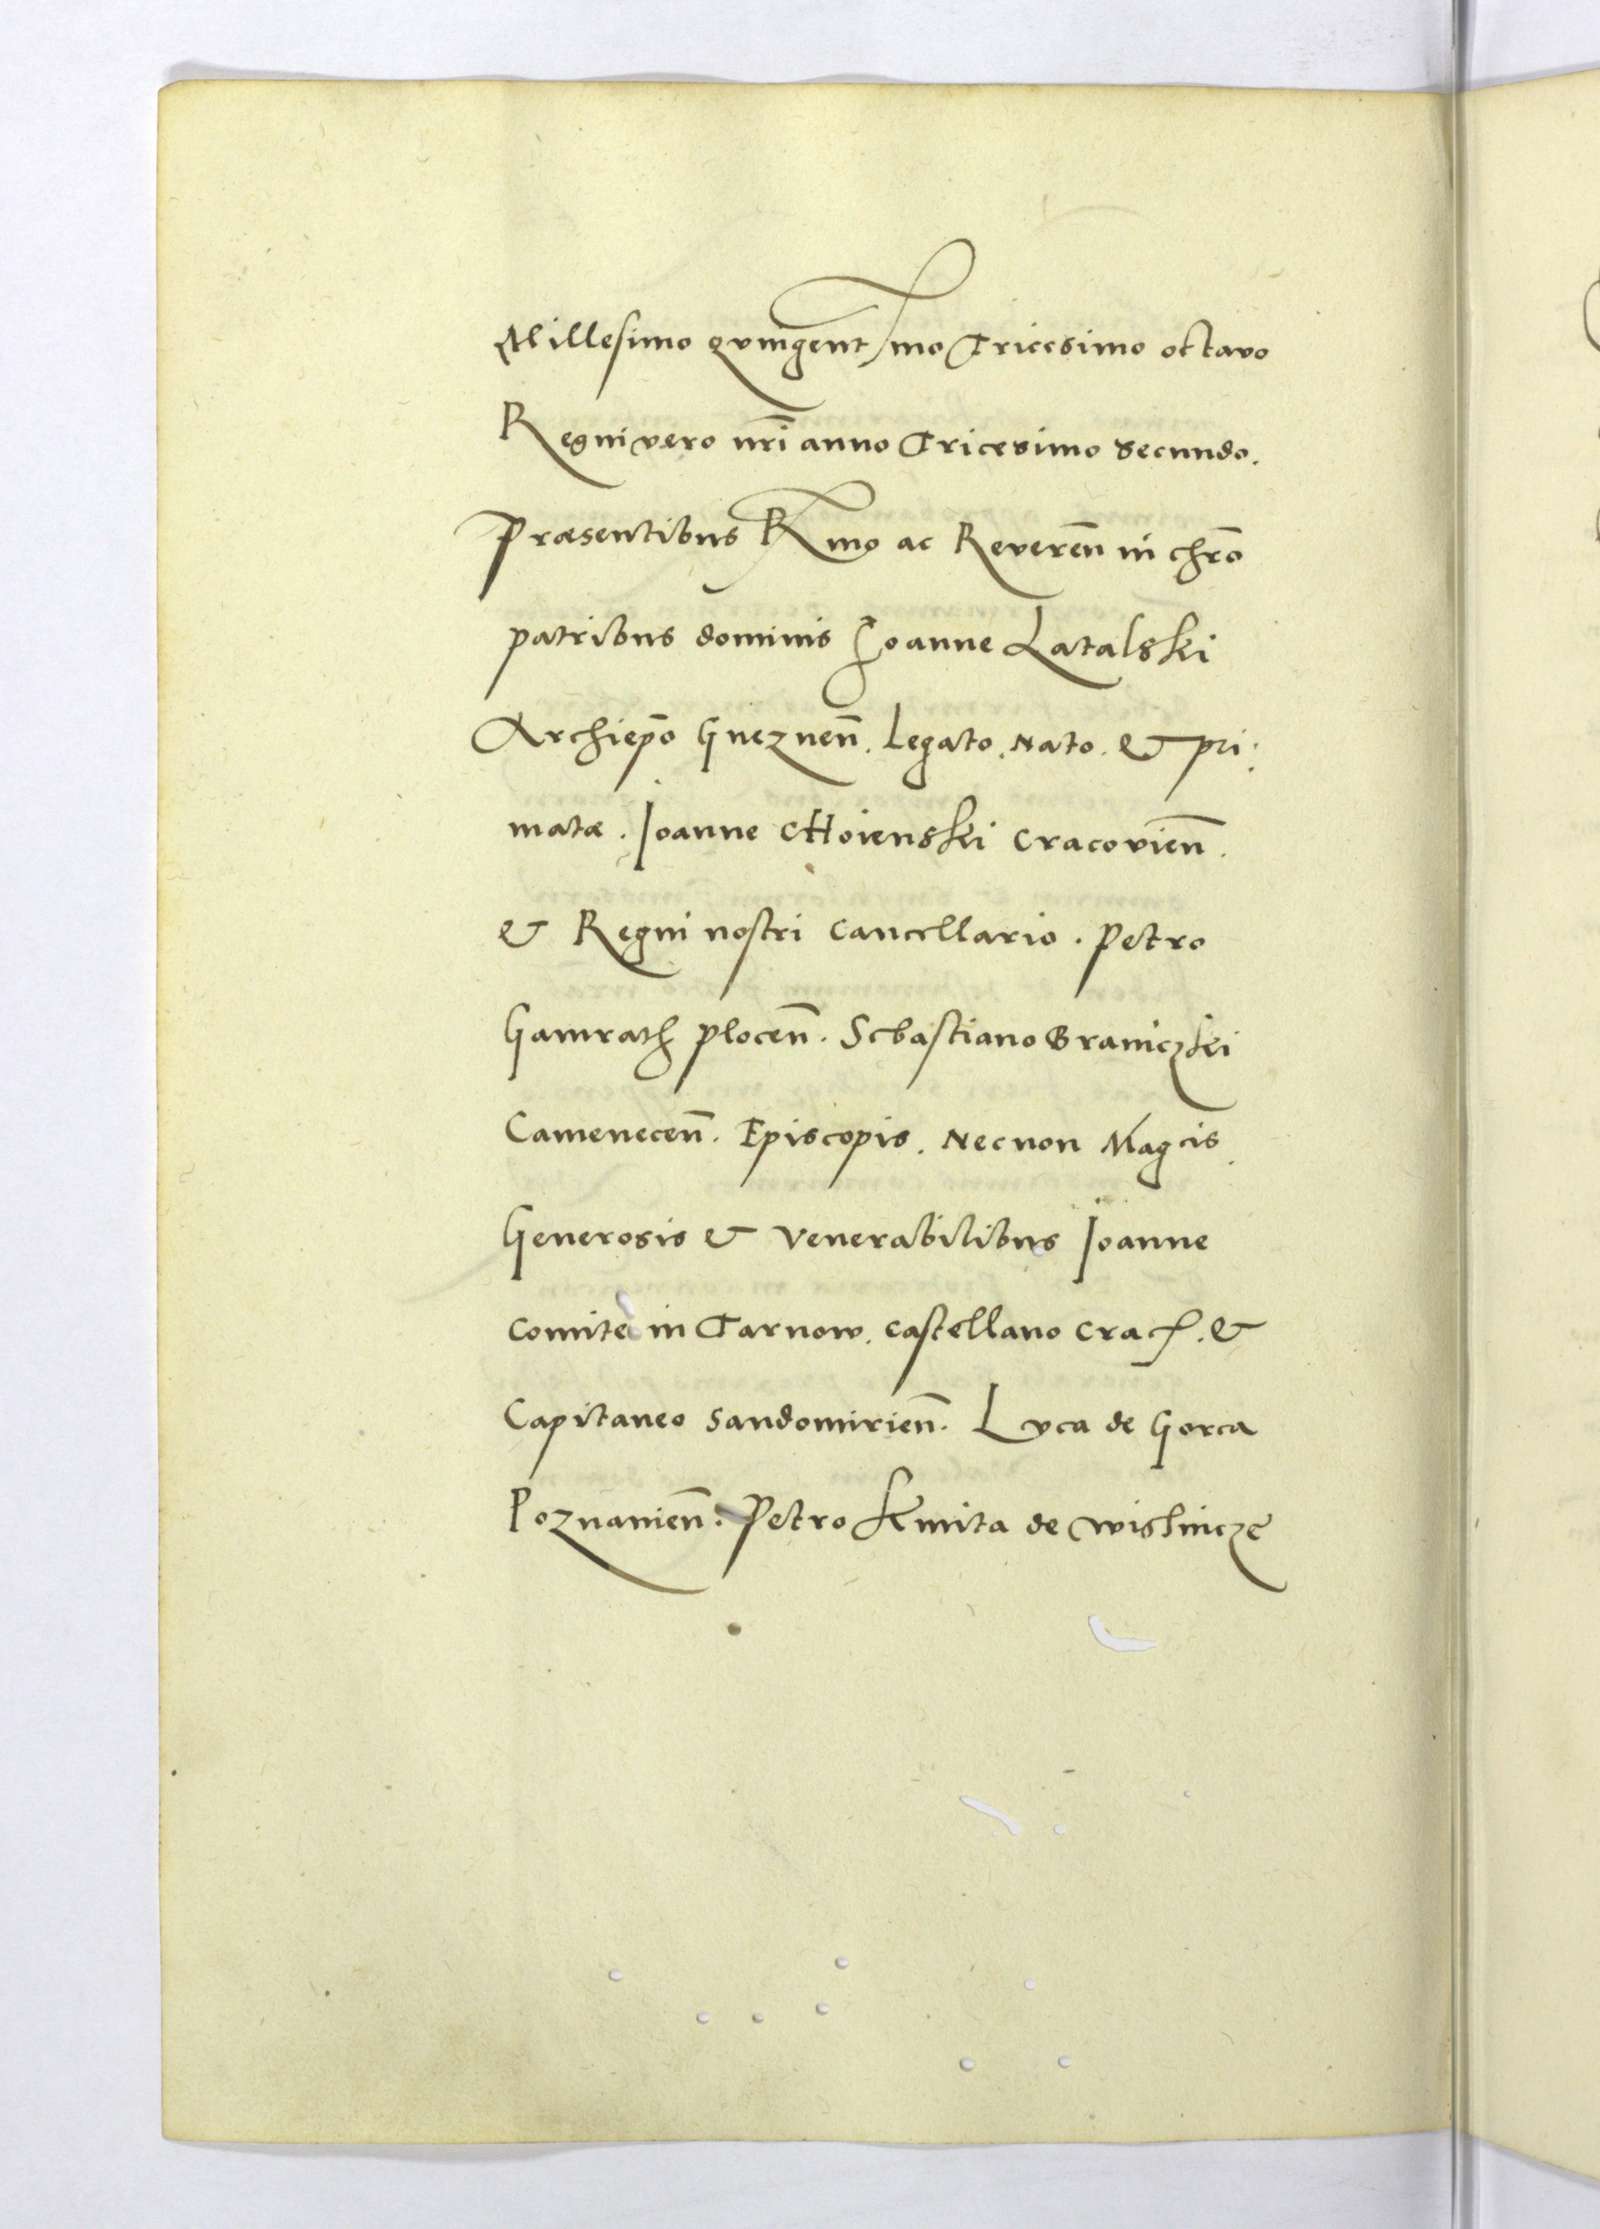 Millesimo qvingentſmo Tricesimo octavo
Regni vero nrī anno Tricesimo secundo.
Præsentibus Rmo ac Reveren̄ in chro͞
patribus dominis Joanne Latalski
Archiep̄o Gnezneñ. Legato. Nato. & pri:
matæ. Joanne CHoienski Cracovieñ.
& Regni nostri Cancellario. Petro
Gamrath ploceñ. Sebastiano Braniczki
Cameneceñ. Episcopis. Necnon Magcis.
Generosis & Venerabilibus Joanne
Comite in Tarnow. Castellano Crac. &
Capitaneo Sandomirieñ. Lvca de Gorca
Poznanieñ. Petro Kmita de wishicze